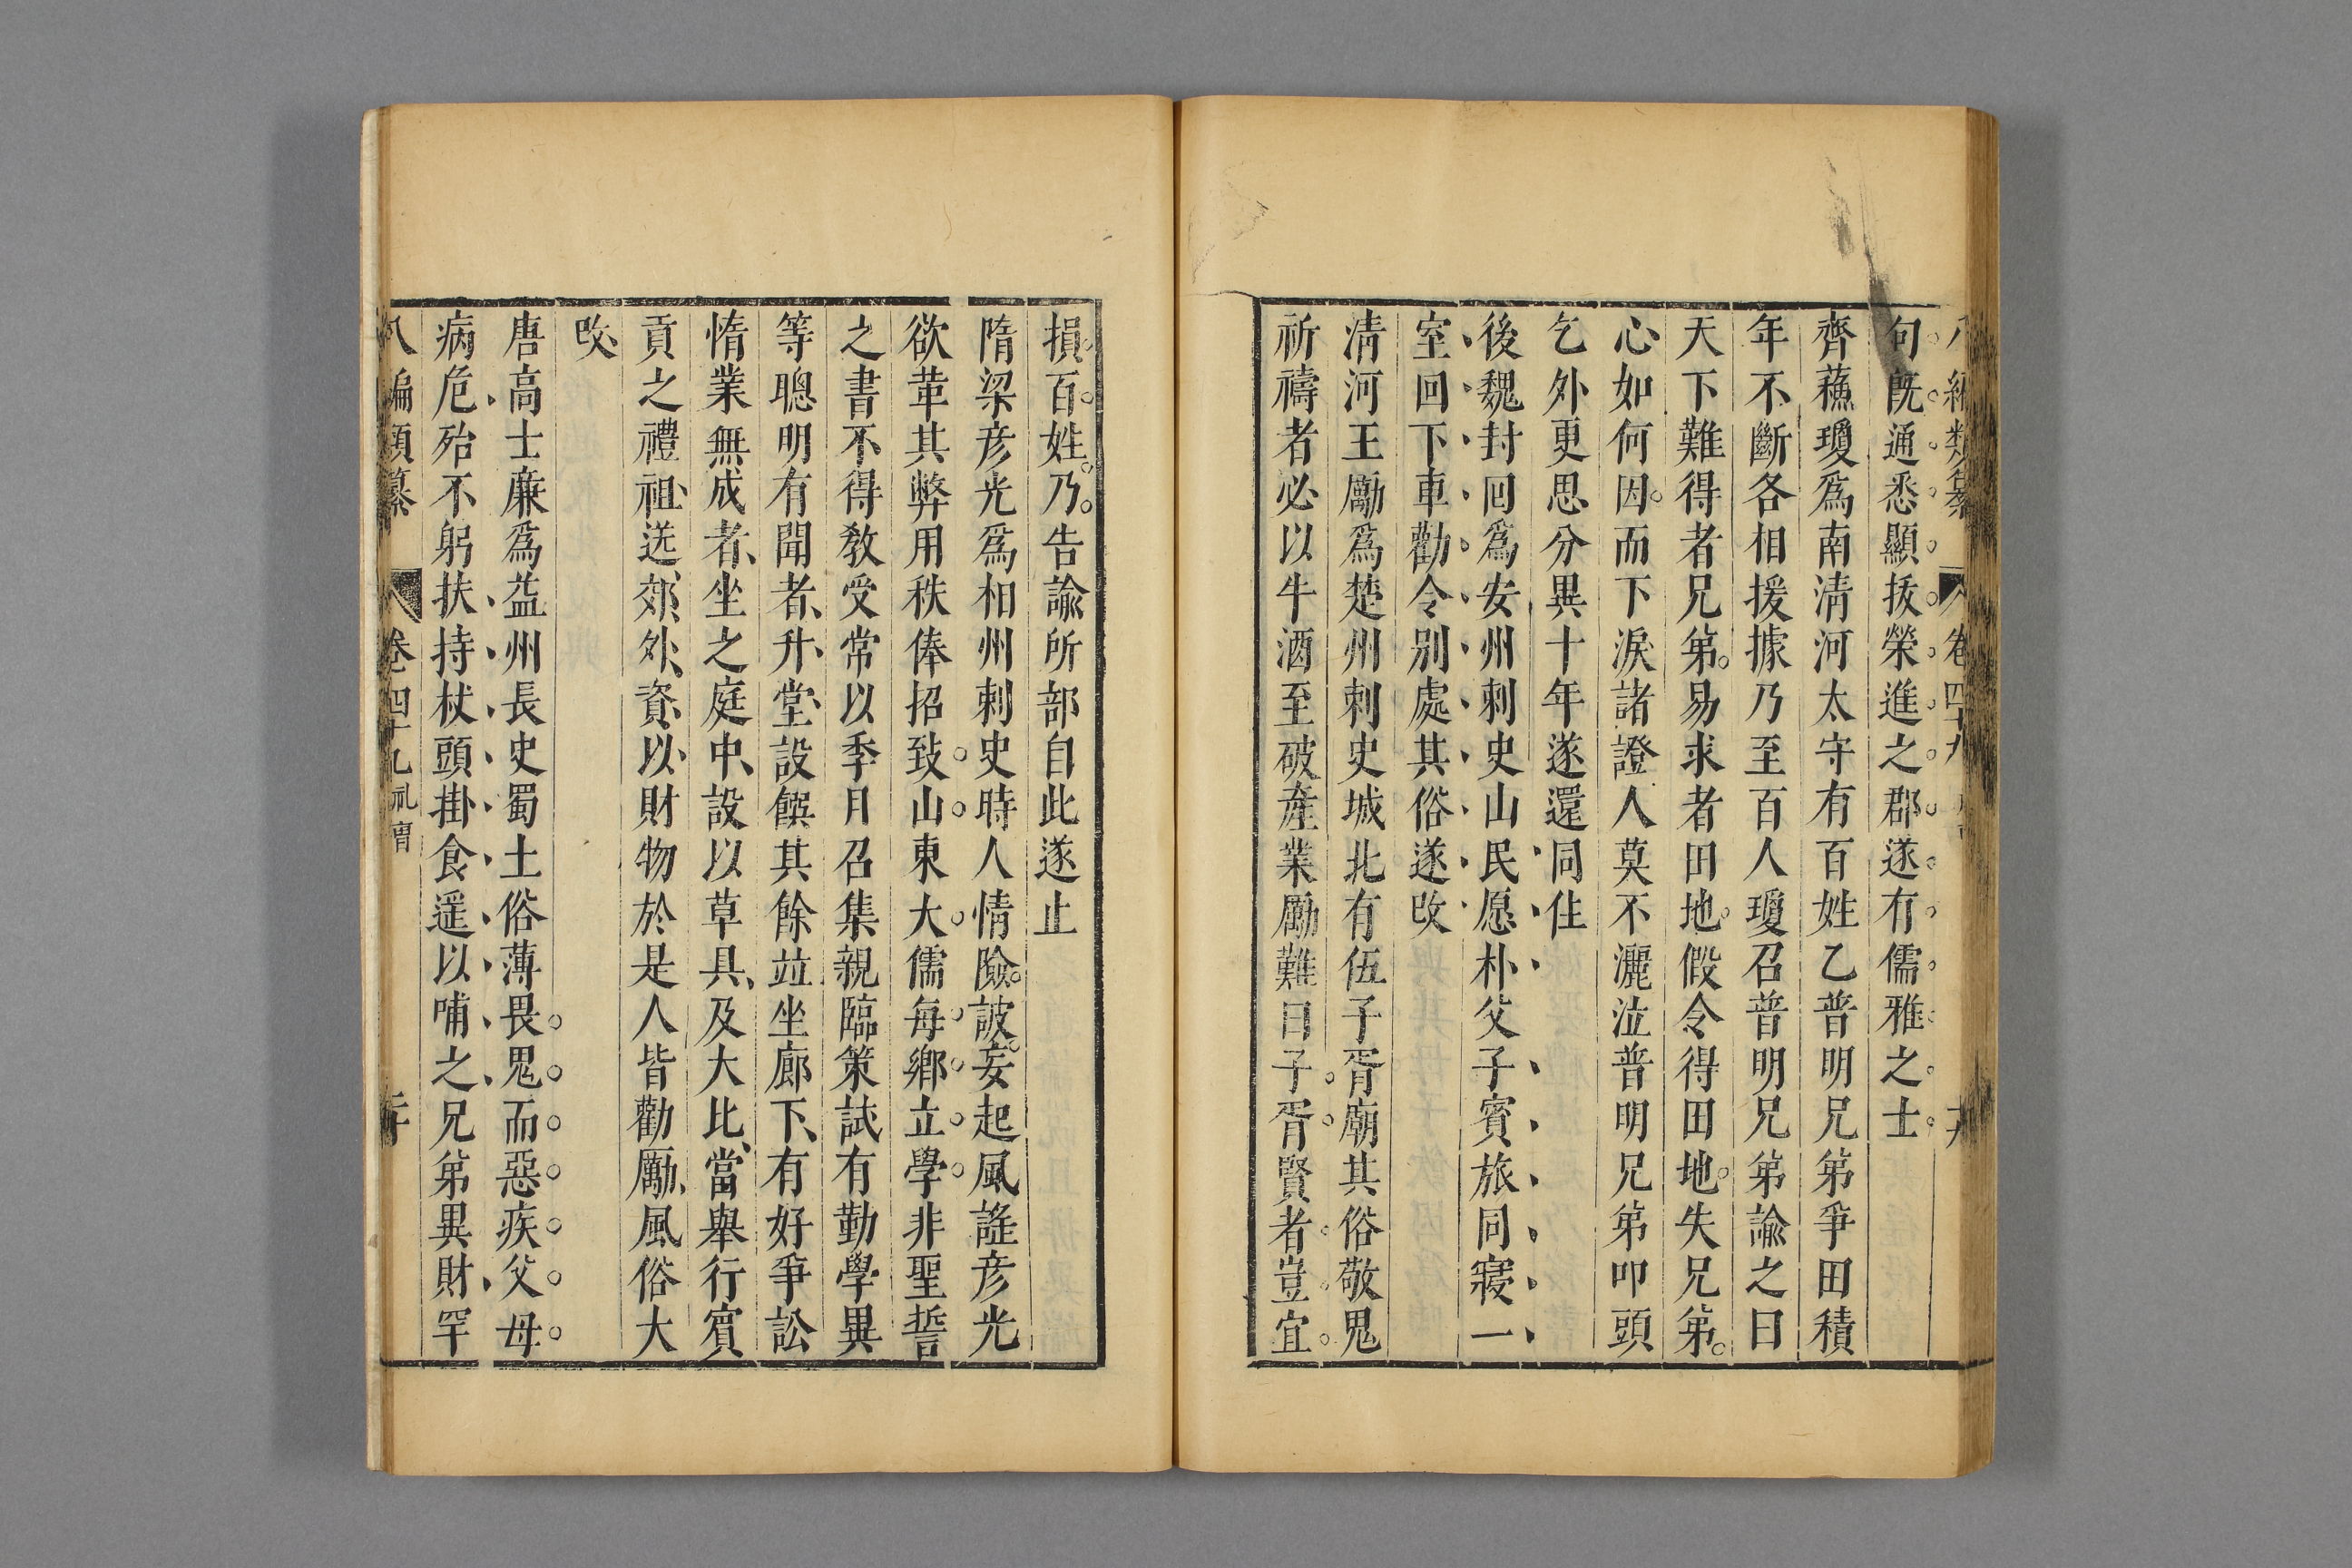 八編類纂 卷四十九 十九
句既通悉顯拔榮進之郡遂有儒雅之士
齊蘓瓊爲南清河太守有百姓乙普明兄弟爭田積
年不斷各相援據乃至百人瓊召普明兄弟諭之曰
天下難得者兄弟易求者田地假令得田地失兄弟
心如何因而下淚諸證人莫不灑泣普明兄弟叩頭
乞外更思分異十年遂還同住
後魏封回爲安州刺史山民愿朴父子賓旅同寢一
室回下車勸令別處其俗遂攺
清河王勵爲楚州刺史城北有伍子胥廟其俗敬鬼
祈禱者必以牛酒至破產業勵難曰子胥賢者豈宜
損百姓乃告諭所部自此遂止
隋梁彦光爲相州刺史時人情險詖妄起風謠彦光
欲革其弊用秩俸招致山東大儒每鄉立學非聖哲
之書不得敎受常以季月召集親臨策試有勤學異
等聰明有聞者升堂設饌其餘竝坐廊下有好爭訟
惰業無成者坐之庭中設以草具及大比當舉行賓
貢之禮祖送郊外資以財物於是人皆勸勵風俗大
攺
唐高士廉爲益州長史蜀土俗薄畏鬼而惡疾父母
病危殆不躬扶持杖頭掛食遥以哺之兄弟異財罕
八編類纂 卷四十九 礼曹 二十